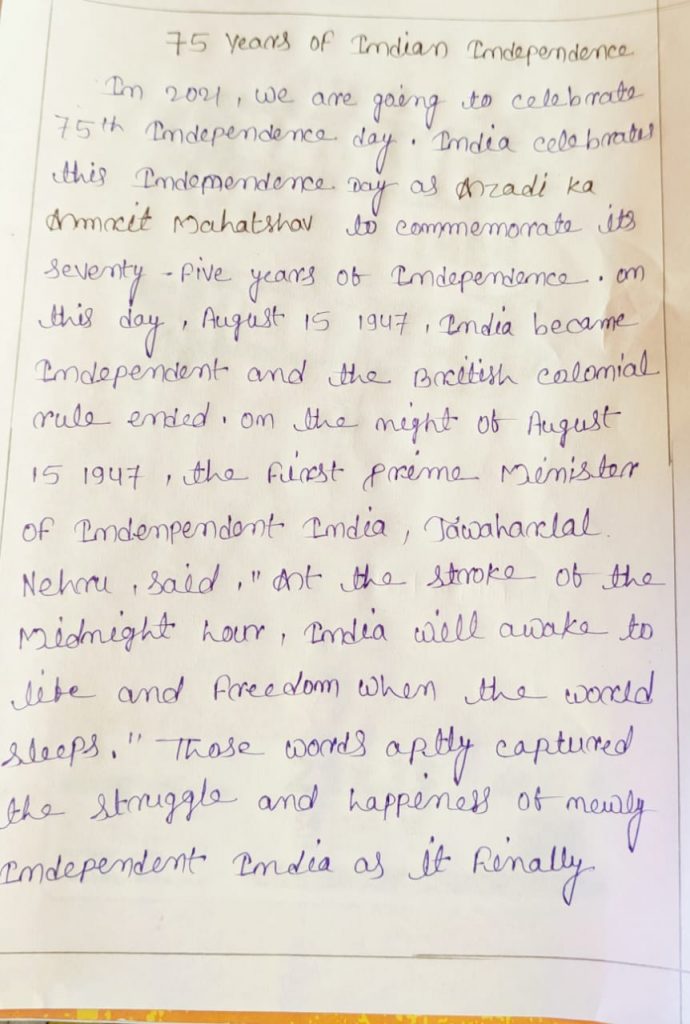 75 Years of Indian Independence
In 2021, we are going to celebrate
75th Independence day. India celebrates
this Indepnendence Day as Anzadi ka
Ammrit Mahatshav to commemorate its
seventy-five years of Independence. on
this day, August 15 1947, India became
Independent and the British colonial
rule ended. on the night of August
15 1947, the first prime Minister
of Indenpendent India, Jawaharlal
Nehru, said, "At the stroke of the
Midnight hour, India will awake to
life and freedom when the world
sleeps." Those words aptly captured
the struggle and happiness of newly
Independent India as it finally